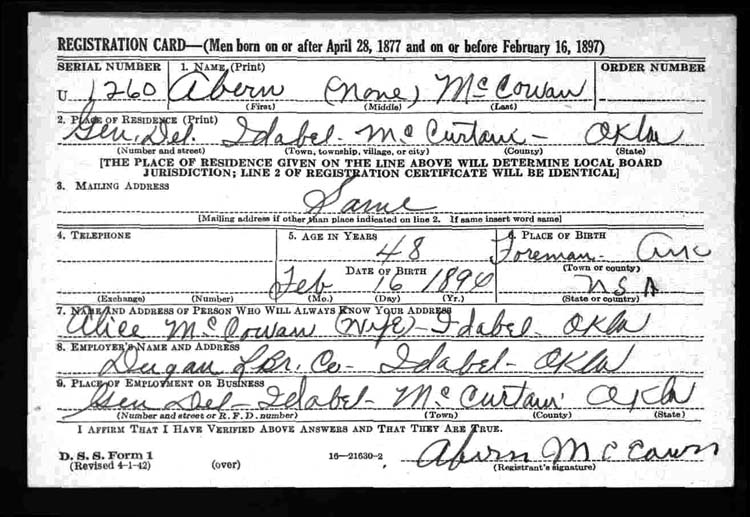 REGISTRATION CARD—(Men born on or after April 28, 1877 and on or before February 16, 1897)
SERIAL NUMBER 1. NAME (Print) ORDER NUMBER
U 1260 Abern (None) McCowan
(First) (Middle) (Last)
2. PLACE OF RESIDENCE (Print)
Gen. Del. Idabel - McCurtain - Okla
(Number and street) (Town, township, village, or city) (County) (State)
[THE PLACE OF RESIDENCE GIVEN ON THE LINE ABOVE WILL DETERMINE LOCAL BOARD
JURISDICTION; LINE 2 OF REGISTRATION CERTIFICATE WILL BE IDENTICAL]
3. MAILING ADDRESS
Same
[Mailing address if other than place indicated on line 2. If same insert word same]
4. TELEPHONE 5. AGE IN YEARS 6. PLACE OF BIRTH
48 Foreman - Ark
DATE OF BIRTH (Town or county)
Feb 16 1894 USA
(Exchange) (Number) (Mo.) (Day) (Yr.) (State or country)
7. NAME AND ADDRESS OF PERSON WHO WILL ALWAYS KNOW YOUR ADDRESS
Alice McCowan (Wife) - Idabel - Okla
8. EMPLOYER'S NAME AND ADDRESS
Dugan Lbr. Co - Idabel - Okla
9. PLACE OF EMPLOYMENT OR BUSINESS
Gen Del - Idabel - McCurtain Okla
(Number and street or R. F. D. number) (Town) (County) (State)
I AFFIRM THAT I HAVE VERIFIED ABOVE ANSWERS AND THAT THEY ARE TRUE.
D. S. S. Form 1
(Revised 4-1-42) (over) 16—21630-2 Abern McCown
(Registrant's signature)